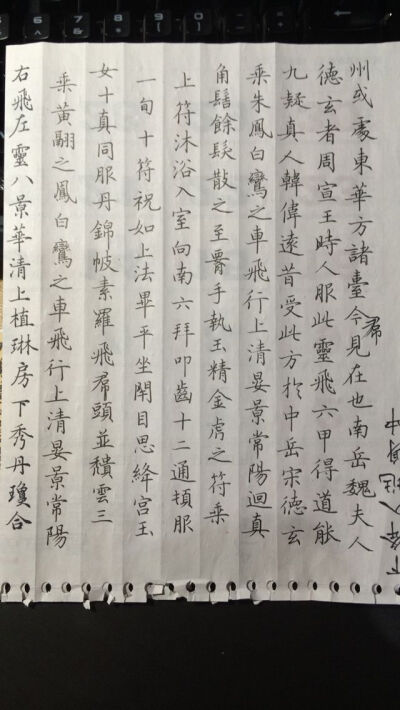 州或處東華方諸臺今見在也南岳魏夫人
帬
德玄者周宣王時人服此靈飛六甲得道能
九疑真人韓偉遠昔受此方於中岳宋德玄
乘朱鳳白鸞之車飛行上清晏景常陽迴真
角髻餘髮散之至腰手執玉精金虎之符乘
上符沐浴入室向南六拜叩齒十二通頓服
一旬十符祝如上法畢平坐閉目思絳宮玉
女十真同服丹錦帔素羅飛帬頭並穨雲三
乘黃翮之鳳白鸞之車飛行上清晏景常陽
右飛左靈八景華清上植琳房下秀丹瓊合